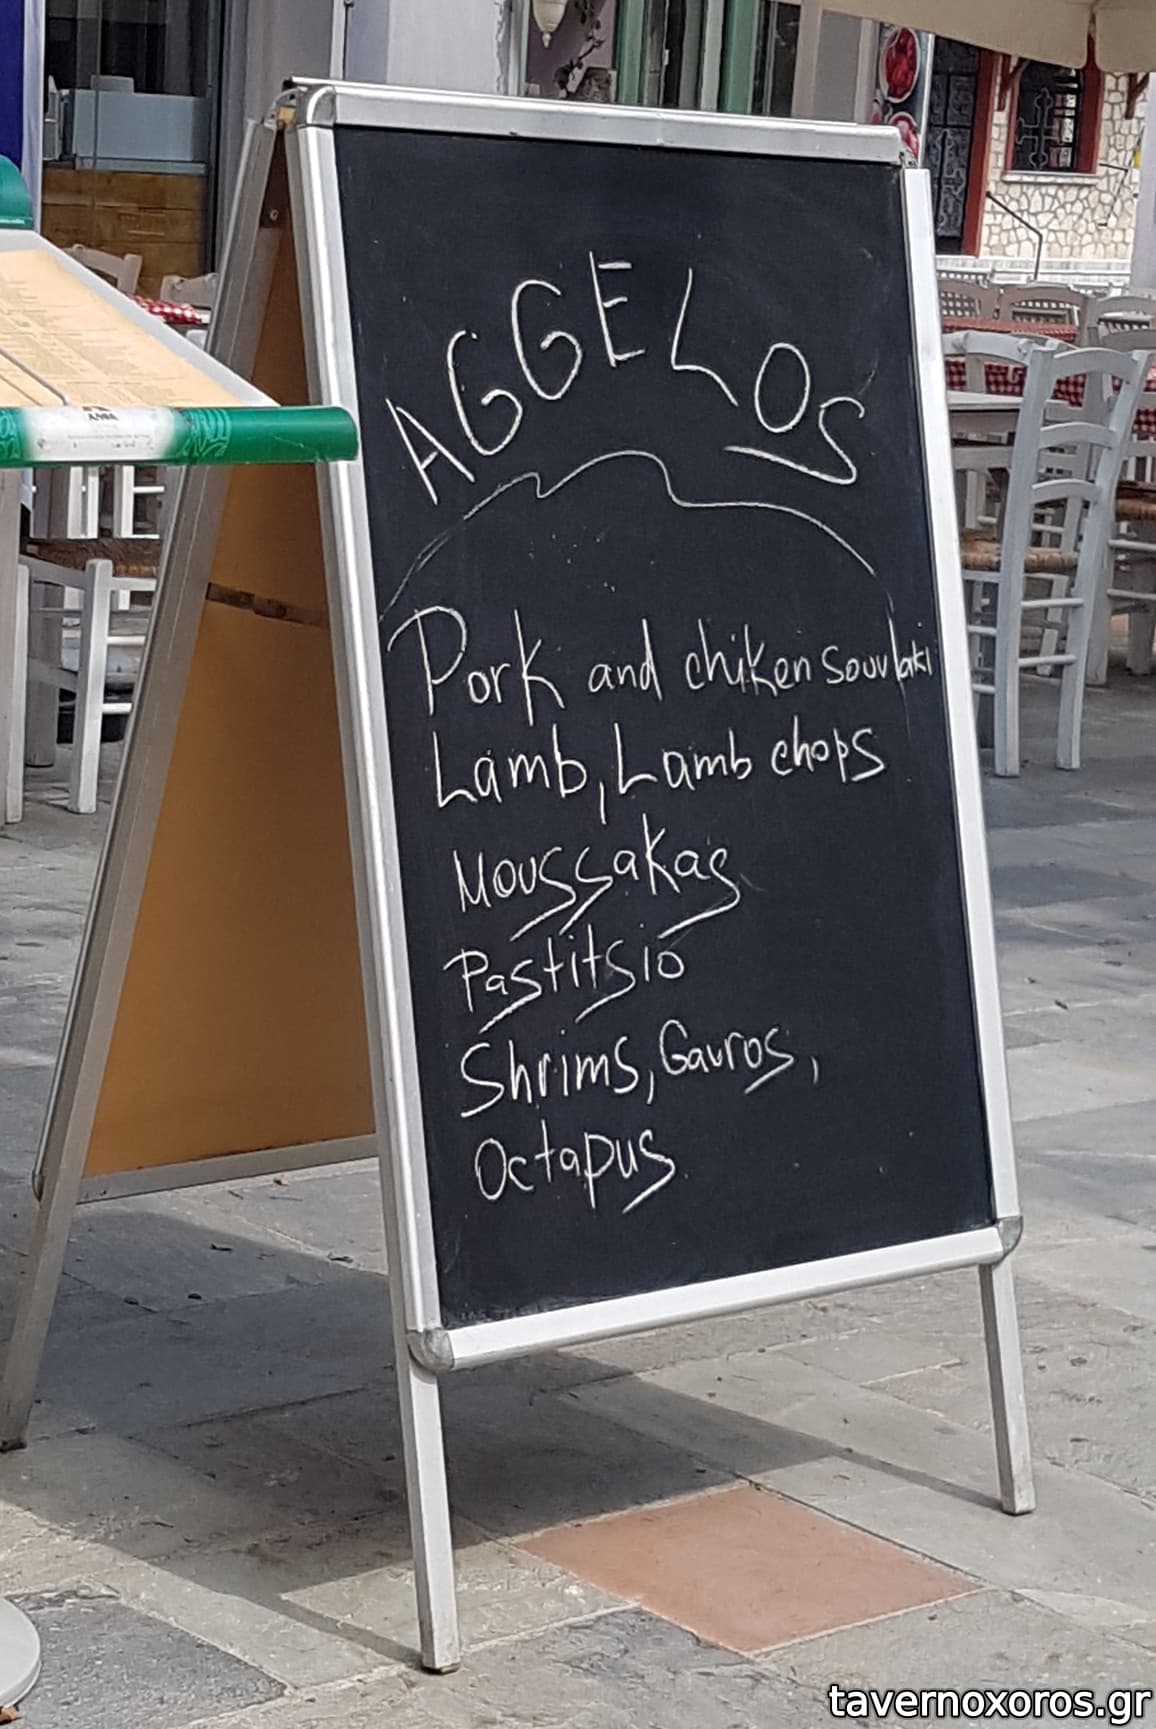 AGGELOS
Pork and chiken souvlaki
Lamb, Lamb chops
Moussakas
Pastitsio
Shrims, Gauros,
Octapus
tavernoxoros.gr